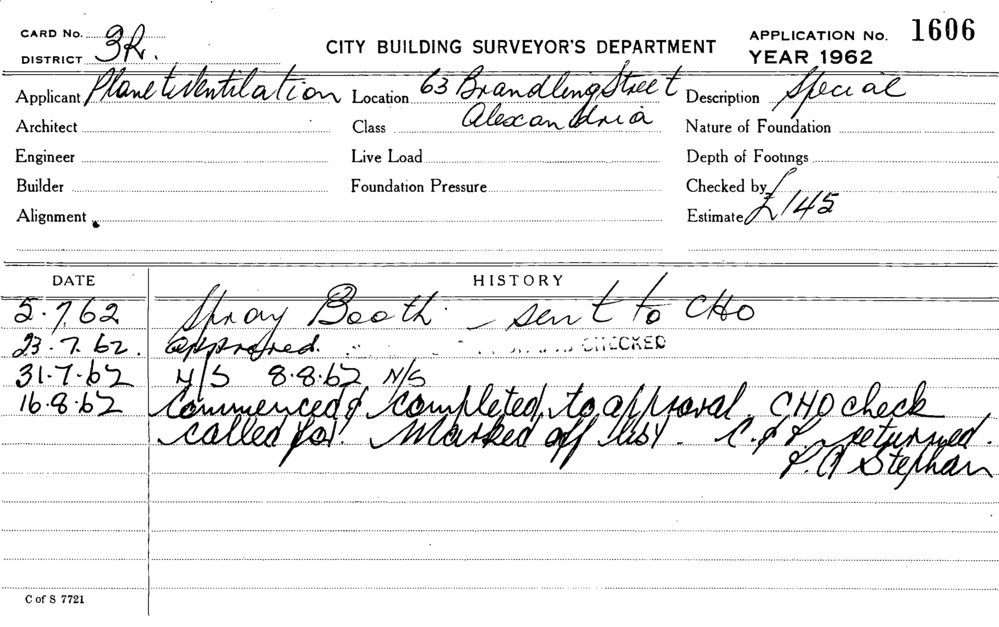 CARD No. 3R.
DISTRICT
CITY BUILDING SURVEYOR'S DEPARTMENT
APPLICATION No. 1606
YEAR 1962
Applicant Planet Ventilation
Location 63 Brandling Street
Alexandria
Description Special
Architect
Class
Nature of Foundation
Engineer
Live Load
Depth of Footings
Builder
Foundation Pressure
Checked by
Alignment
Estimate £145
DATE HISTORY
5.7.62 Spray Booth. – sent to CHO
23.7.62. approved. CHECKED
31.7.62 N/S 8.8.62 N/S
16.8.62 Commenced & completed, to approval. CHO check
called for. Marked off list. C. & P. returned.
P. A Stephan
C of S 7721